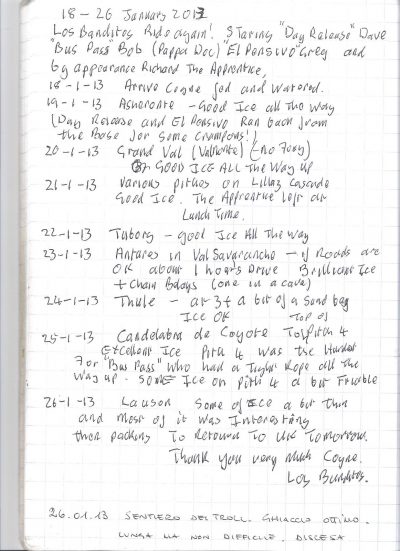 18 - 26 January 2013
Los Banditos Ride again! Staring "Day Release" Dave
"Bus Pass" Bob (Pappa Doc) "El Pensivo" Greg and
by appearance Richard The Apprentice,
18-1-13 Arrive Cogne fed and watered.
19-1-13 - Good Ice all the way
(Day Release and El Pensivo Ran back from
the Base for some Crampons!)
20-1-13 Grand Val (Valnonte) (-no 70m)
GOOD ICE ALL The Way up
21-1-13 Various pitches on Lillaz Cascade
Good Ice. The Apprentice left at
Lunch Time.
22-1-13 Tuborg - good Ice All The way
23-1-13 Antares in Val Savaranche - if Roads are
OK about 1 hours Drive Brilliant Ice
+ Chain Belays (one in a cave)
24-1-13 Thule - at 3+ a bit of a Sand bag
Ice OK
25-1-13 Candelabra de Coyote To Top of Pitch 4
Excellent Ice Pitch 4 was the Hardest
For "Bus Pass" who had a Tight Rope all the
way up. Some Ice on pitch 4 a bit Friable
26-1-13 Lauson Some of Ice a bit thin
and most of it was Interesting
then packing To Retourn To UK Tomorrow.
Thank you very much Cogne.
Los Banditos.
26.01.13 SENTIERO DEI TROLL. GHIACCIO OTTIMO.
LUNGA MA NON DIFFICILE. DISCESA